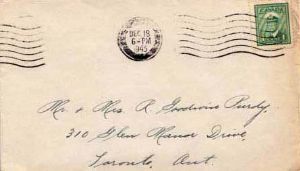 DEC 18
6-PM
1945
Mr. & Mrs. R. Goodwin Purdy,
310 Glen Manor Drive,
Toronto, Ont.